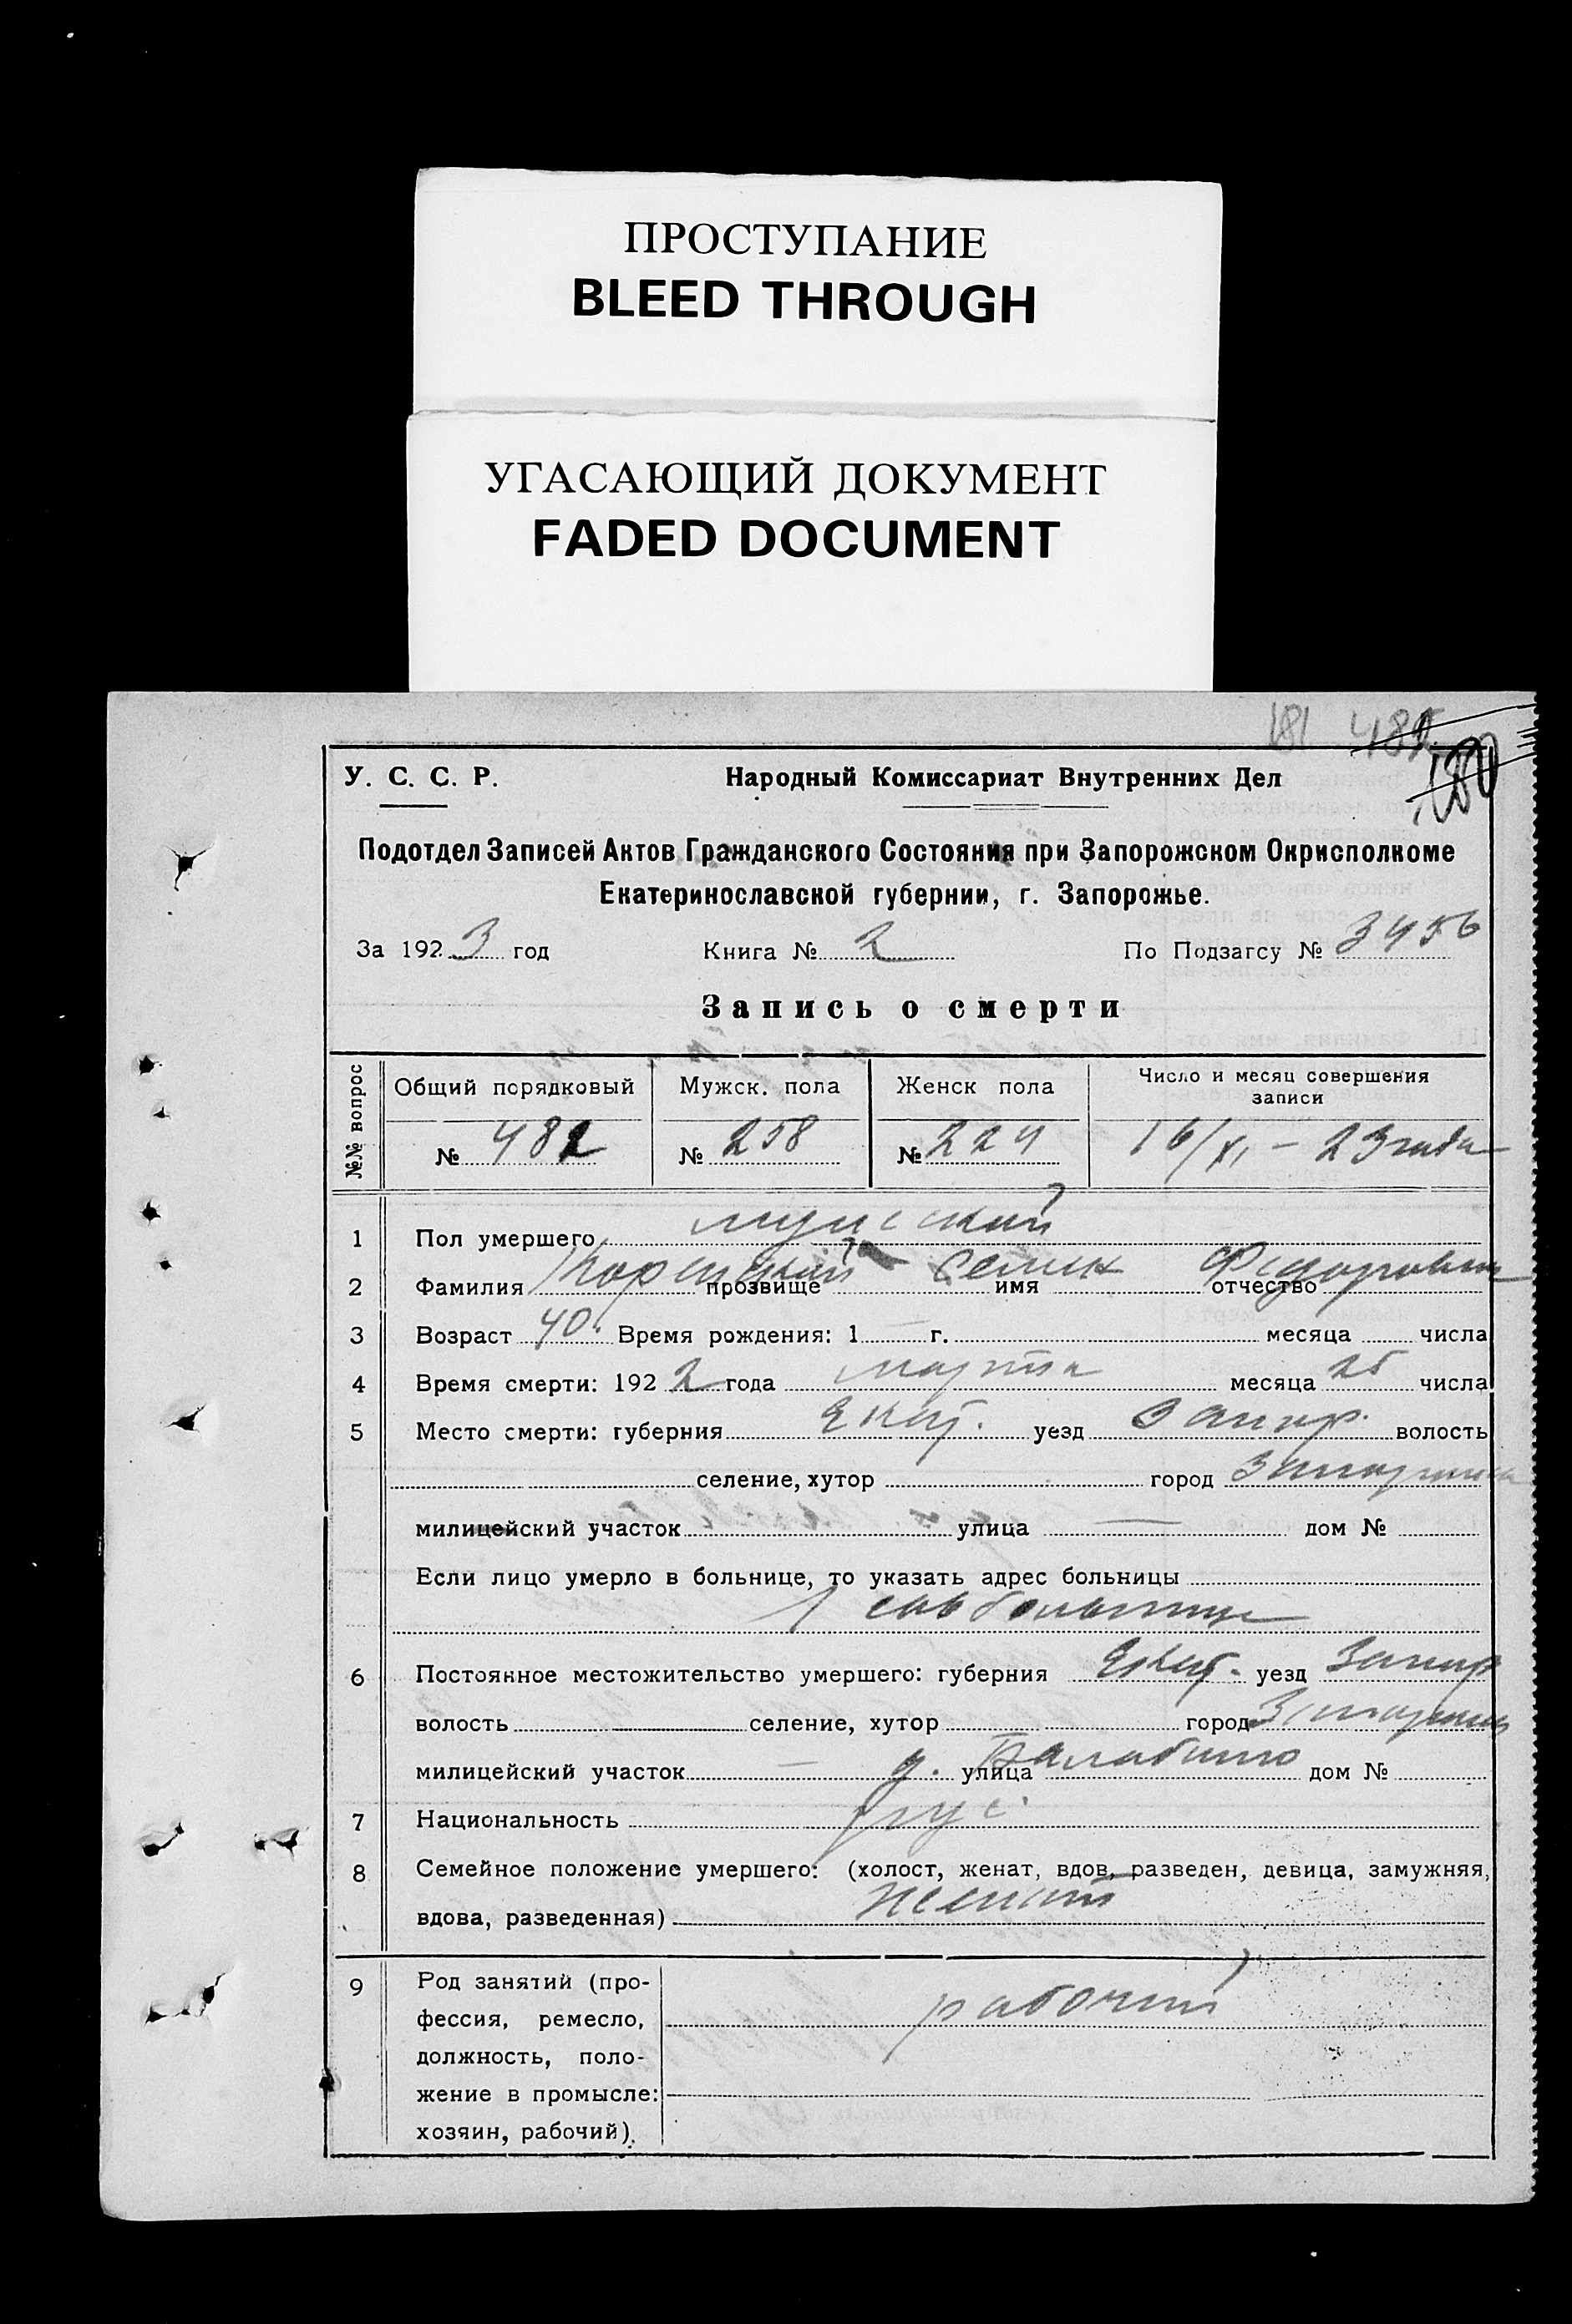 ПРОСТУПАНИЕ
BLEED THROUGH
УГАСАЮЩИЙ ДОКУМЕНТ
FADED DOCUMENT
181 481 180
У. С. С. Р. Народный Комиссариат Внутренних Дел
Подотдел Записей Актов Гражданского Состояния при Запорожском Окрисполкоме
Екатеринославской губернии, г. Запорожье.
За 1923 год Книга № 2 По Подзагсу № 3456
Запись о смерти
№№ вопрос Общий порядковый Мужск. пола Женск пола Число и месяц совершения записи
№ 482 № 258 № 224 16/XI – 23 года
1 Пол умершего мужской
2 Фамилия прозвище Семен имя Федорович отчество
3 Возраст 40. Время рождения: 1 — г. месяца числа
4 Время смерти: 1922 года марта месяца 25 числа
5 Место смерти: губерния Екат. уезд Запор. волость
селение, хутор город Запорожье
милицейский участок улица — дом №
Если лицо умерло в больнице, то указать адрес больницы
1 совбольница
6 Постоянное местожительство умершего: губерния Екат. уезд Запор
волость — селение, хутор город Запорожье
милицейский участок — д. улица Балабино дом №
7 Национальность рус.
8 Семейное положение умершего: (холост, женат, вдов, разведен, девица, замужняя,
вдова, разведенная) женат
9 Род занятий (про-
фессия, ремесло, рабочий
должность, поло-
жение в промысле:
хозяин, рабочий).